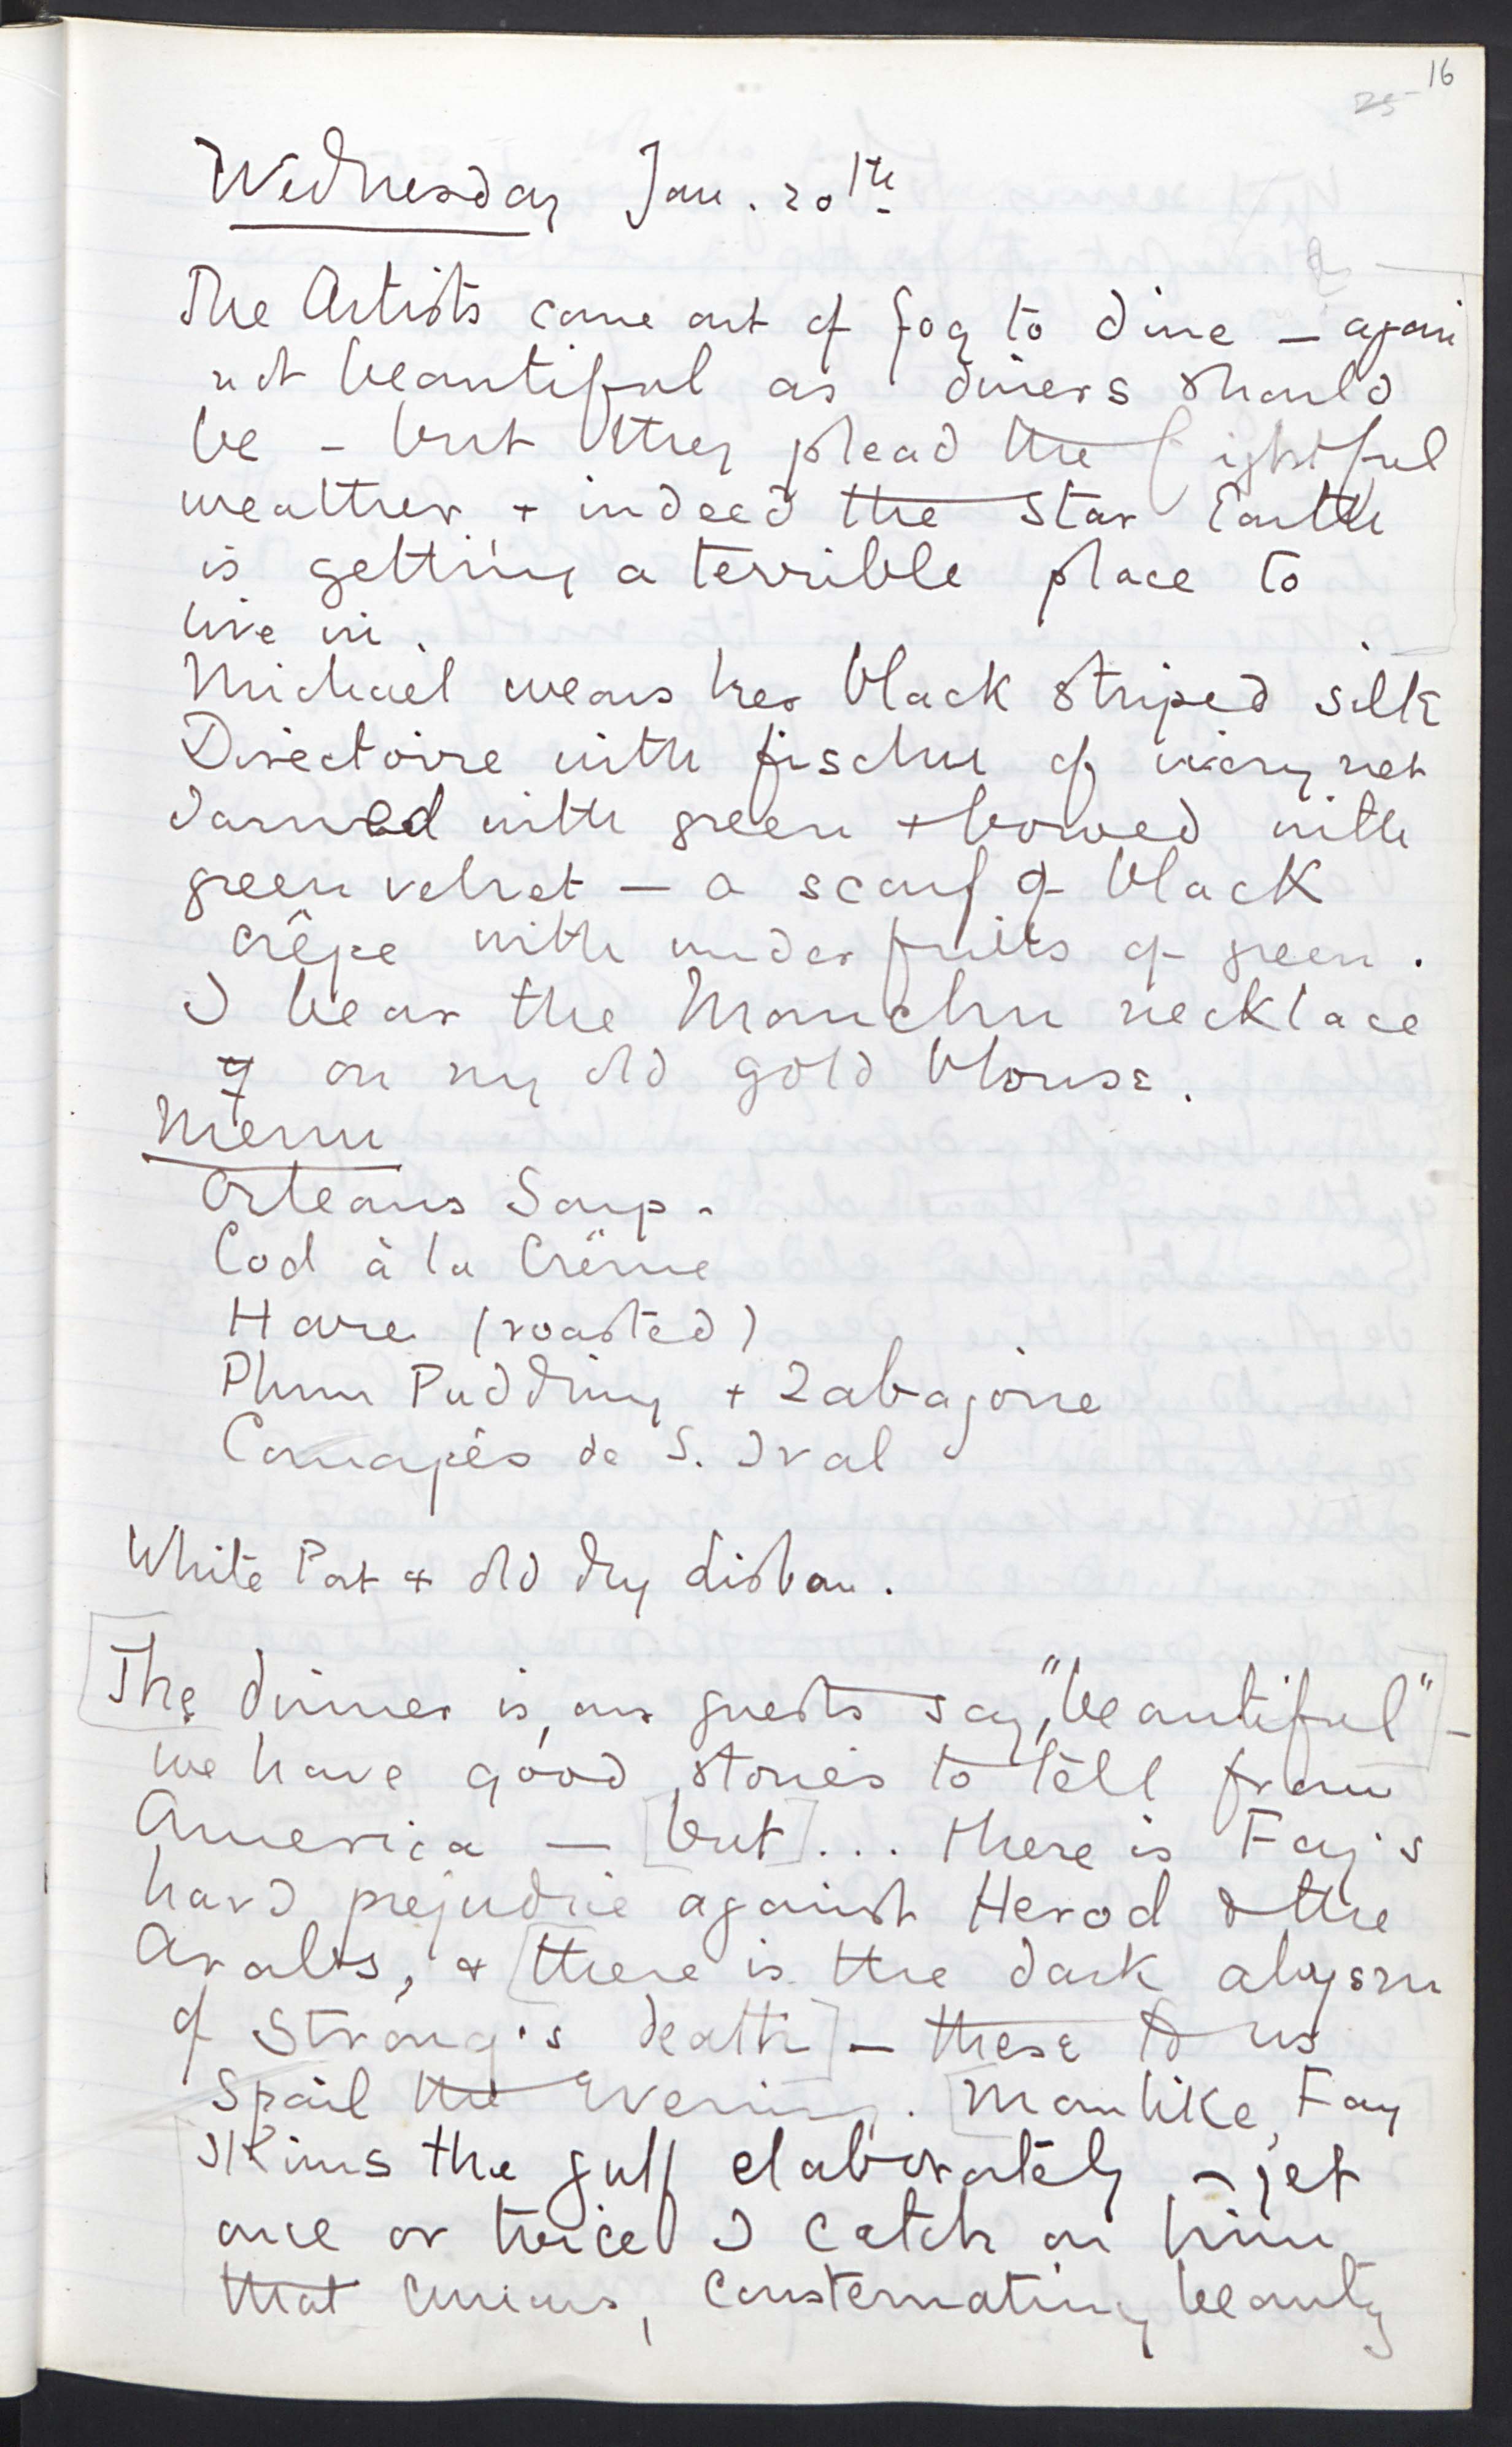 16
25
Wednesday Jan. 20th.
The Artists come out of fog to dine — again
not beautiful as diners should
be – but they plead the frightful
weather + indeed the star Earth
is getting a terrible place to
live in.
Michael wears her black striped silk
Directoire with fischu of ivory net
darned with green + bowed with
green velvet — a scarf of black
crêpe with under of green.
I bear the Manchu necklace
on my old gold blouse.
Menu
Orleans Soup.
Cod à la Crême
Hare (roasted)
Plum Pudding + Zabagone
Canapés de S. Ival
White Port + old dry Lisbon.
[The dinner is, our guests say, "beautiful"] –
we have good stories to tell from
America — [but] ... there is Fay's
hard prejudice against Herod & the
Arabs, + [there is the dark abysm
of Strong's death] – these to us
spoil the Evening. [Manlike, Fay
skims the gulf elaborately – yet
once or twice I catch on him
that curious, consternating beauty